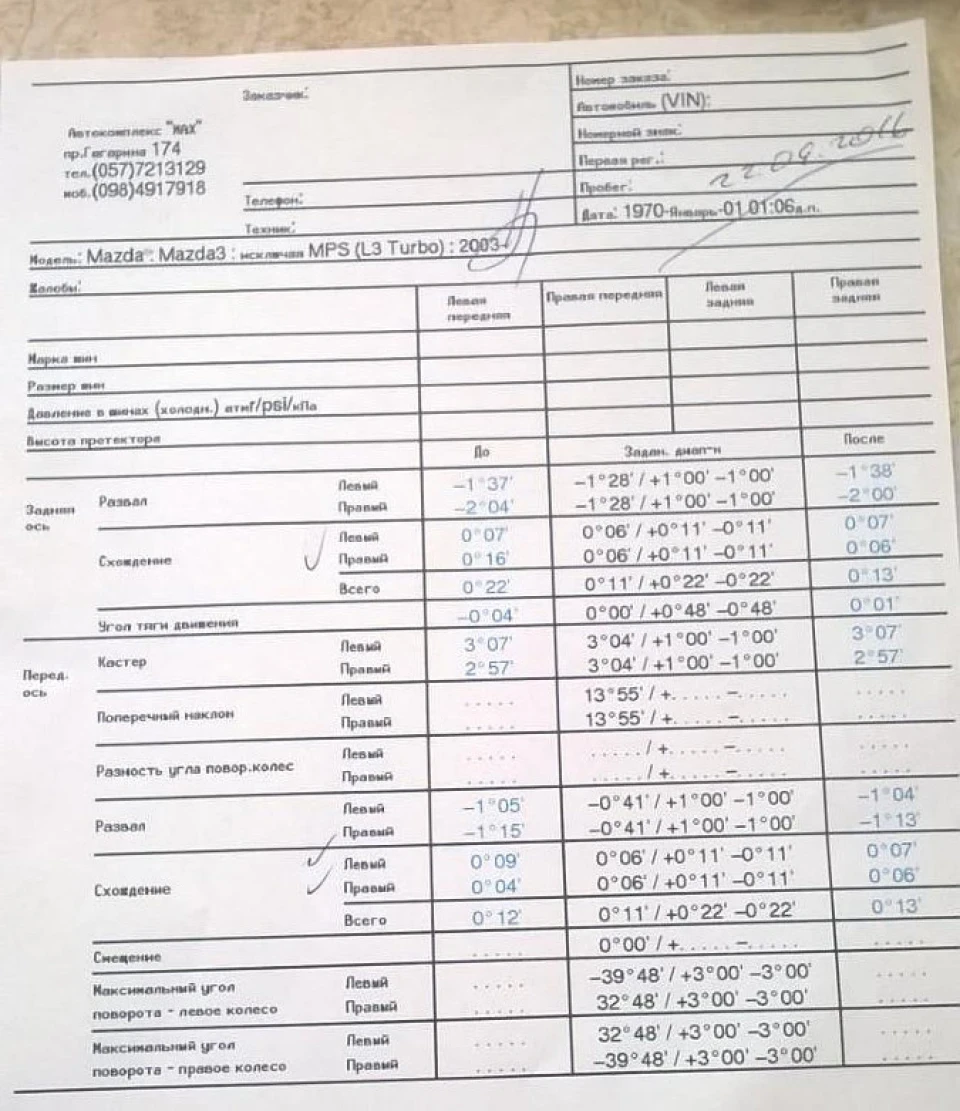 Заказчик:
Номер заказа:
Автомобиль (VIN):
Номерной знак:
Первая рег.:
Пробег:
22.09.2016
Дата: 1970-Январь-01 01:06д.п.
Автокомплекс "МАХ"
пр.Гагарина 174
тел.(057)7213129
моб.(098)4917918
Телефон:
Техник:
Модель: Mazda : Mazda3 : исключая MPS (L3 Turbo) : 2003-
Жалобы:
Левая передняя Правая передняя Левая задняя Правая задняя
Марка шин
Размер шин
Давление в шинах (холодн.) атмг/psi/кПа
Высота протектора
До Задан. диап-н После
Задняя ось
Развал Левый -1°37' -1°28' / +1°00' -1°00' -1°38'
Правый -2°04' -1°28' / +1°00' -1°00' -2°00'
Схождение Левый 0°07' 0°06' / +0°11' -0°11' 0°07'
Правый 0°16' 0°06' / +0°11' -0°11' 0°06'
Всего 0°22' 0°11' / +0°22' -0°22' 0°13'
Угол тяги движения -0°04' 0°00' / +0°48' -0°48' 0°01'
Перед. ось
Кастер Левый 3°07' 3°04' / +1°00' -1°00' 3°07'
Правый 2°57' 3°04' / +1°00' -1°00' 2°57'
Поперечный наклон Левый ..... 13°55' / +..... -..... .....
Правый ..... 13°55' / +..... -..... .....
Разность угла повор.колес Левый ..... ..... / +..... -..... .....
Правый ..... ..... / +..... -..... .....
Развал Левый -1°05' -0°41' / +1°00' -1°00' -1°04'
Правый -1°15' -0°41' / +1°00' -1°00' -1°13'
Схождение Левый 0°09' 0°06' / +0°11' -0°11' 0°07'
Правый 0°04' 0°06' / +0°11' -0°11' 0°06'
Всего 0°12' 0°11' / +0°22' -0°22' 0°13'
Смещение ..... 0°00' / +..... -..... .....
Максимальный угол Левый ..... -39°48' / +3°00' -3°00' .....
поворота - левое колесо Правый ..... 32°48' / +3°00' -3°00' .....
Максимальный угол Левый ..... 32°48' / +3°00' -3°00' .....
поворота - правое колесо Правый ..... -39°48' / +3°00' -3°00' .....